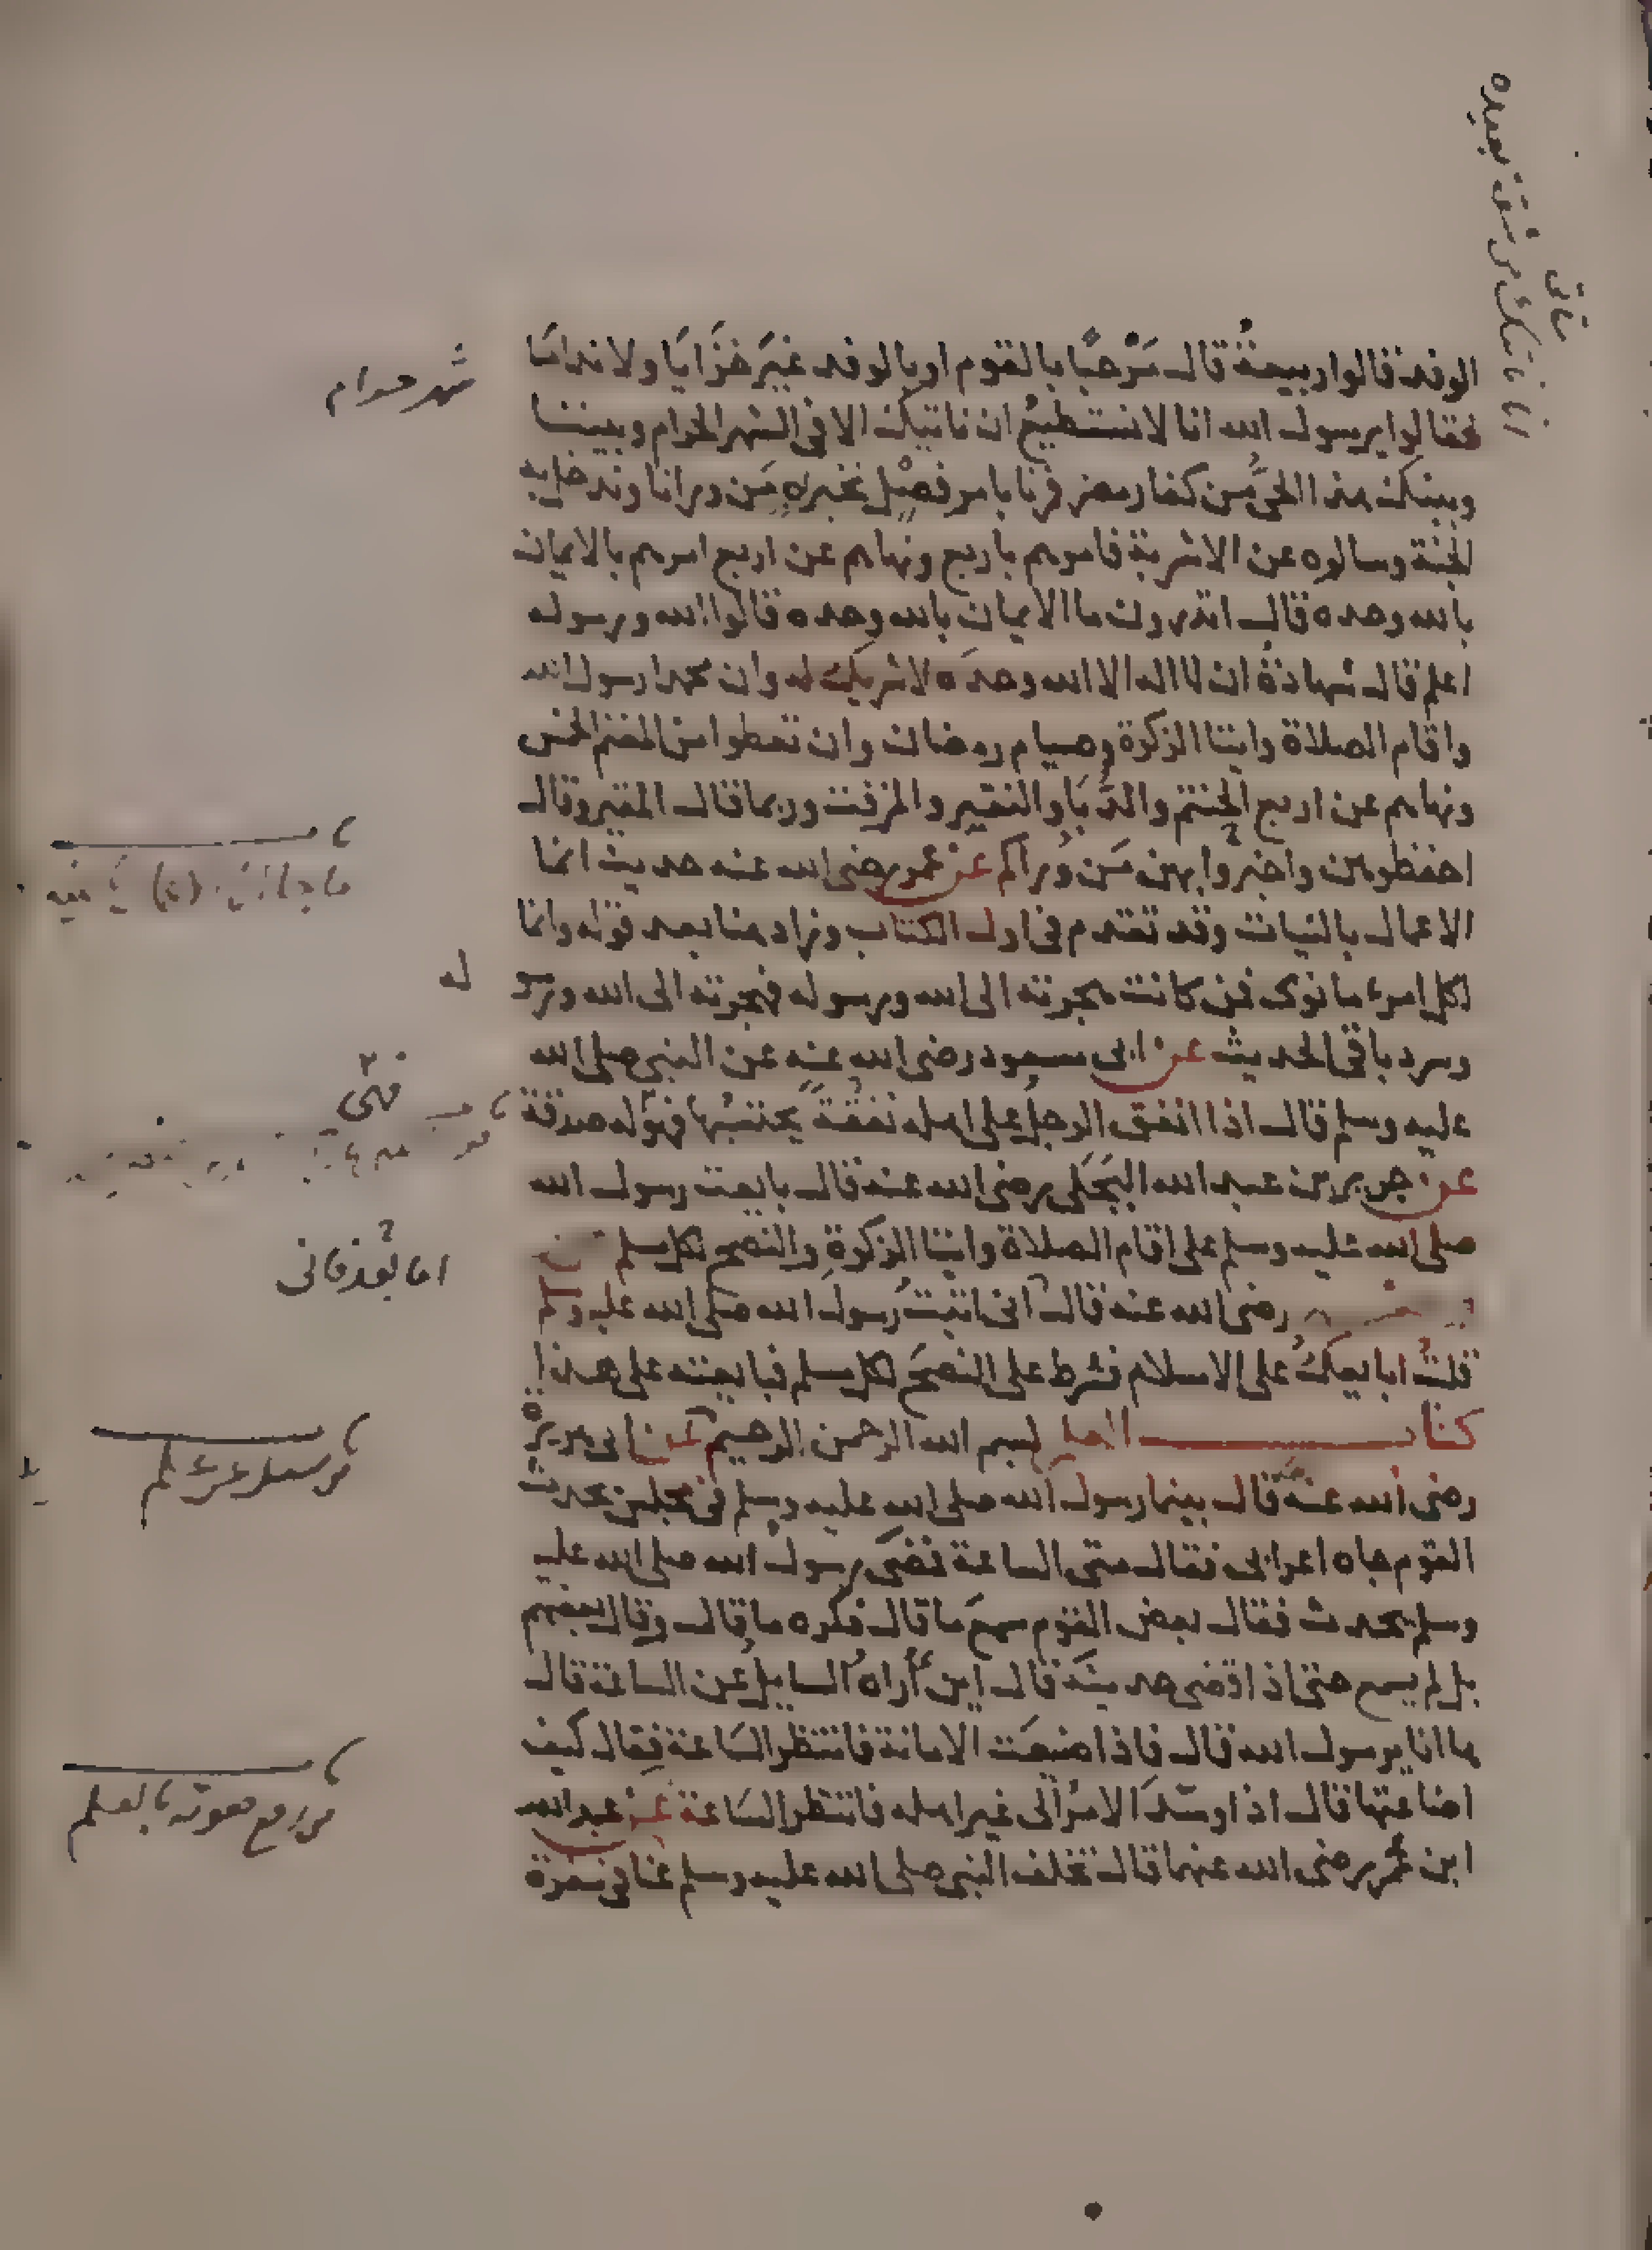 انا ناتيك من شقة بعيدة
الوفد قالوا ربيعة قال مرحبا بالقوم او بالوفد غير خزايا ولا نداما
شهر حرام
فقالوا يرسول الله انا لا نستطيع ان ناتيك الا في الشهر الحرام وبيننا
وبينك هذا الحي من كفار مضر فمرنا بامر فصل نخبر به من ورانا وندخل به
الجنة وسالوه عن الاشربة فامرهم باربع ونهاهم عن اربع امرهم بالايمان
بالله وحده قال اتدرون ما الايمان بالله وحده قالوا الله ورسوله
اعلم قال شهادة ان لا اله الا الله وحده لا شريك له وان محمدا رسول الله
واقام الصلاة وايتا الزكوة وصيام رمضان وان تعطوا من المغنم الخمس
ونهاهم عن اربع الحنتم والدبا والنقير والمزفت وربما قال المقير وقال
احفظوهن واخبروا بهن من وراكم عن عمر رضى الله عنه حديث انما
الاعمال بالنيات وقد تقدم في اول الكتاب وزاد هنا بعد قوله وانما
لكل امرء ما نوى فمن كانت هجرته الى الله ورسوله فهجرته الى الله ورسو
له
وسرد باقي الحديث عن ابى مسعود رضى الله عنه عن النبي صلى الله
عليه وسلم قال اذا انفق الرجل على اهله نفقة يحتسبها فهو له صدقة
فهى
عن جرير بن عبد الله البجلى رضى الله عنه قال بايعت رسول الله
صلى الله عليه وسلم على اقام الصلاة وايتا الزكوة والنصح لكل مسلم
اما بعد فانى
رضى الله عنه قال انى اتيت رسول الله صلى الله عليه وسلم
قلت ابايعك على الاسلام فشرط على النصح لكل مسلم فبايعته على هذا
كتاب العلم بسم الله الرحمن الرحيم عن ابى هريرة
رضى الله عنه قال بينما رسول الله صلى الله عليه وسلم في مجلس يحدث
القوم جاه اعرابى فقال متى الساعة فمضى رسول الله صلى الله عليه
وسلم يحدث فقال بعض القوم سمع ما قال فكره ما قال وقال بعضهم
بل لم يسمع حتى اذا قضى حديثه قال اين اراه السايل عن الساعة قال
ها انا يرسول الله قال فاذا ضيعت الامانة فانتظر الساعة فقال كيف
اضاعتها قال اذا وسد الامر الى غير اهله فانتظر الساعة عن عبد الله
من رفع صوته بالعلم
ابن عمر رضى الله عنهما قال تخلف النبي صلى الله عليه وسلم عنا في سفرة